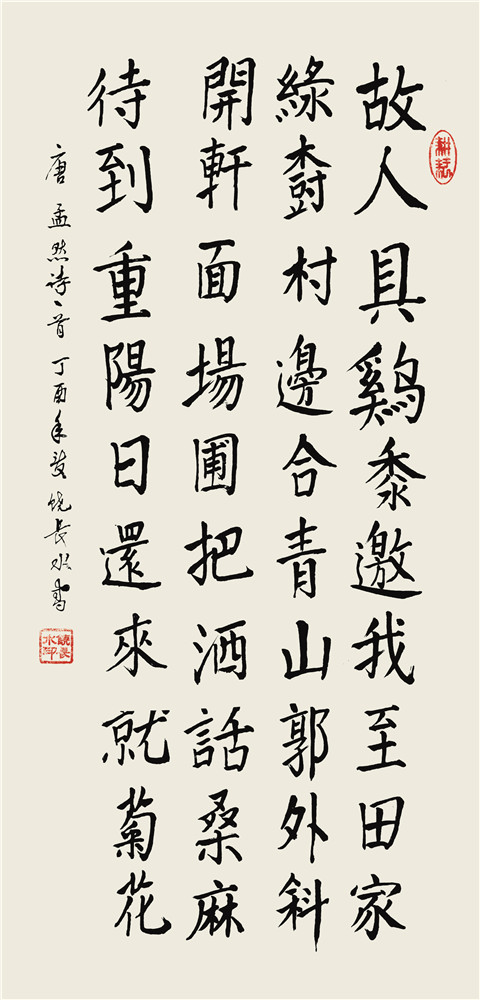 故人具鷄黍邀我至田家
綠樹村邊合青山郭外斜
開軒面場圃把酒話桑麻
待到重陽日還來就菊花
唐孟然诗一首丁酉年 饶長水書
饶長水印